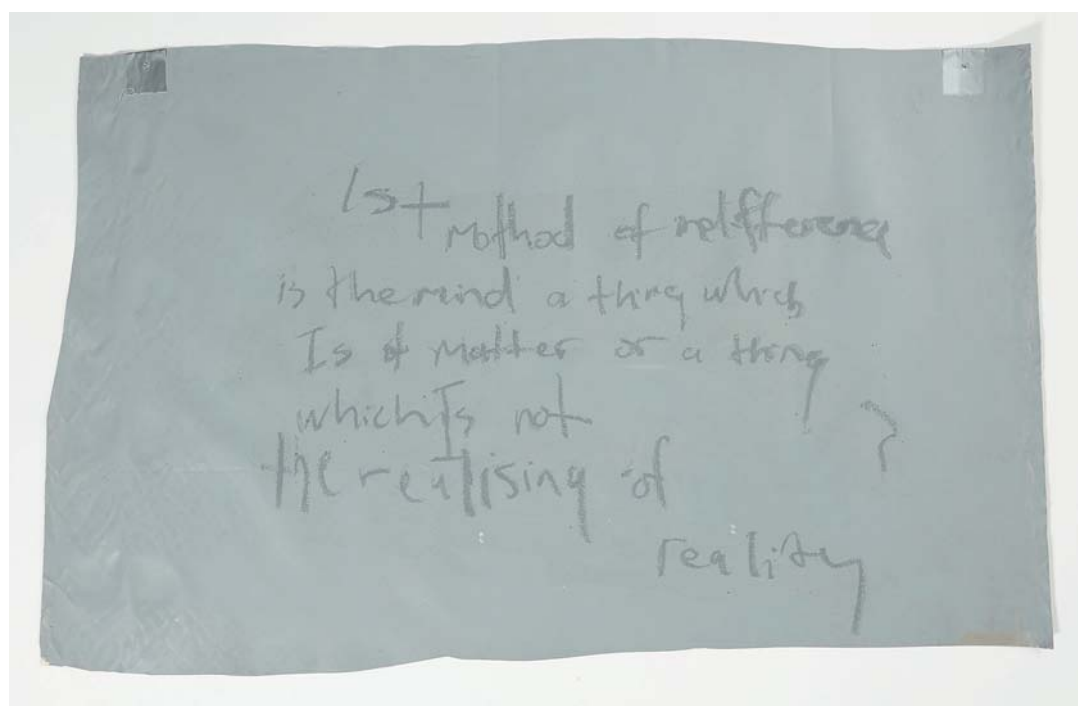 1st
Mothod of indifference
is the mind a thing which
Is of Matter or a thing
which Is not ?
the realising of
reality